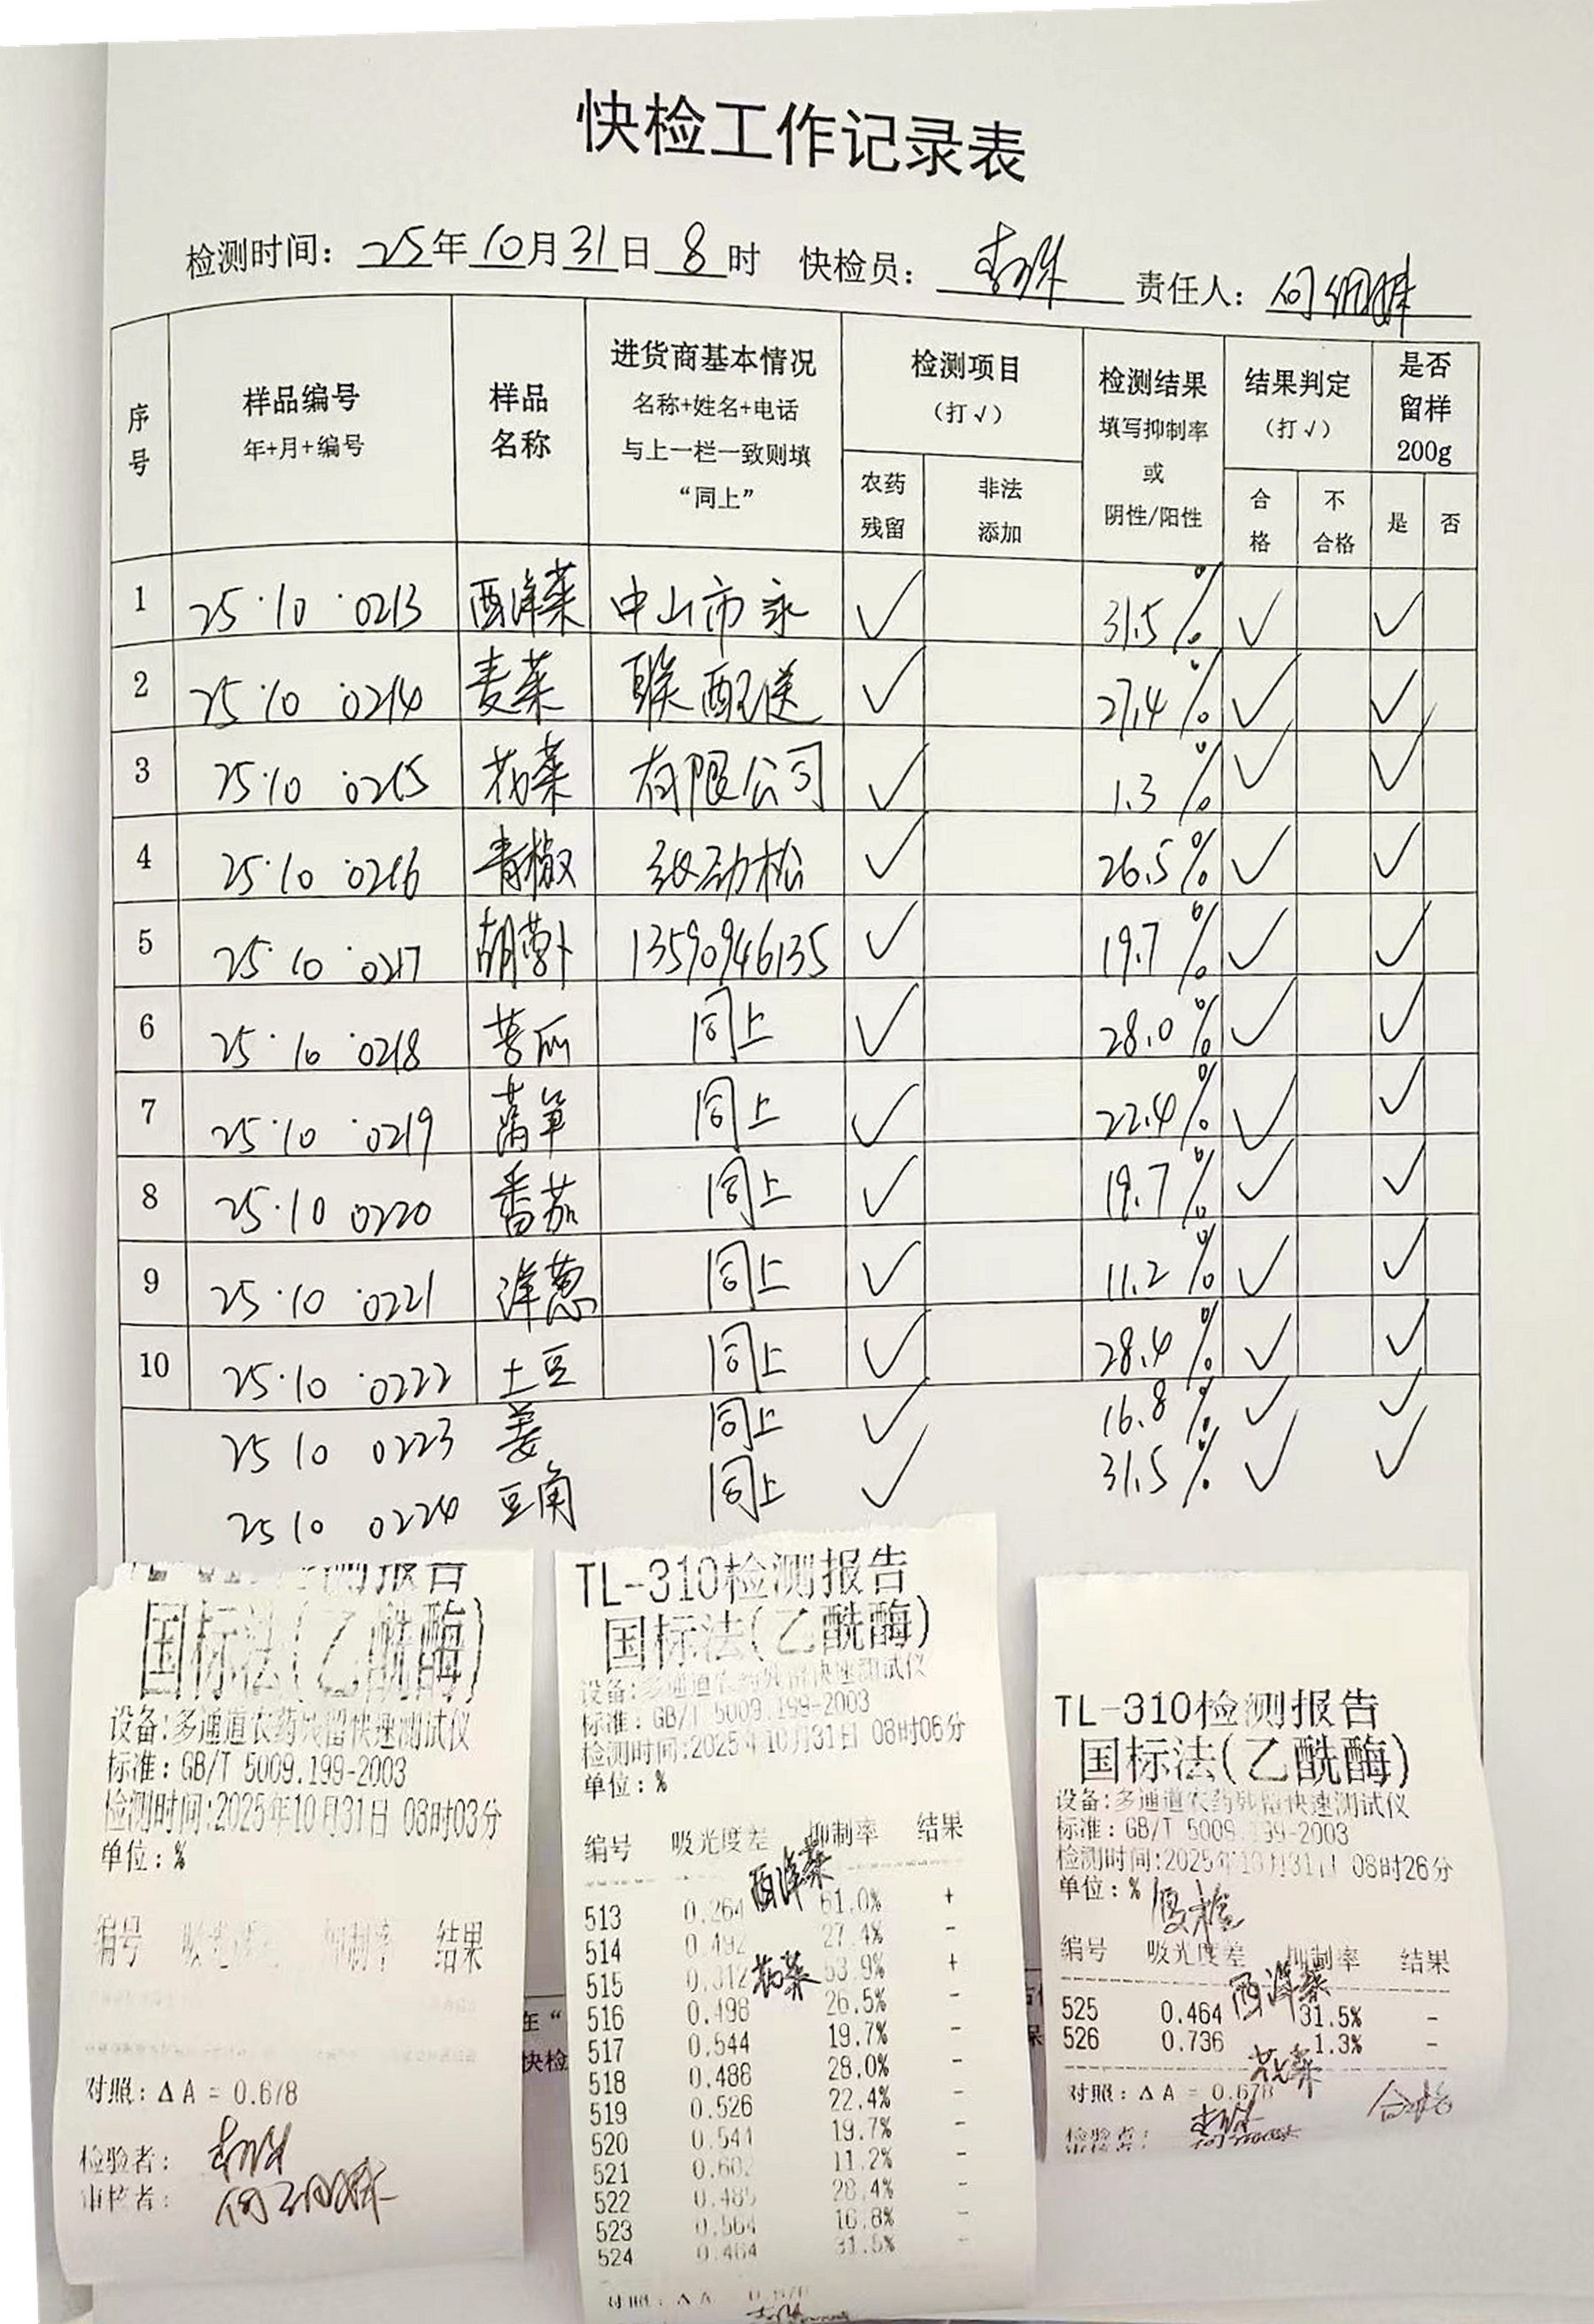 快检工作记录表
检测时间：25年10月31日8时 快检员： 责任人：
序号 样品编号 年+月+编号 样品名称 进货商基本情况 名称+姓名+电话 与上一栏一致则填“同上” 检测项目（打√） 农药残留 非法添加 检测结果 填写抑制率或阴性/阳性 结果判定（打√） 合格 不合格 是否留样200g 是 否
1 25·10·0213 西洋菜 中山市永 √ 31.5% √ √
2 25·10·0214 麦菜 联配送 √ 27.4% √ √
3 25·10·0215 花菜 有限公司 √ 1.3% √ √
4 25·10·0216 青椒 劲松 √ 26.5% √ √
5 25·10·0217 胡萝卜 13590946135 √ 19.7% √ √
6 25·10·0218 同上 √ 28.0% √ √
7 25·10·0219 同上 √ 22.4% √ √
8 25·10 0220 番茄 同上 √ 19.7% √ √
9 25·10·0221 洋葱 同上 √ 11.2% √ √
10 25·10·0222 土豆 同上 √ 28.4% √ √
25 10 0223 姜 同上 √ 16.8% √ √
25 10 0224 豆角 同上 √ 31.5% √ √
检测报告
国标法(乙酰酶)
设备:多通道农药残留快速测试仪
标准：GB/T 5009.199-2003
检测时间:2025年10月31日 08时03分
单位：%
编号 吸光度差 抑制率 结果
对照：ΔA = 0.678
检验者：
审核者：
TL-310检测报告
国标法(乙酰酶)
设备:多通道农药残留快速测试仪
标准：GB/T 5009.199-2003
检测时间:2025年10月31日 08时06分
单位：%
编号 吸光度差 抑制率 结果
513 0.264 西洋菜 61.0% +
514 0.492 27.4% -
515 0.312 花菜 53.9% +
516 0.498 26.5% -
517 0.544 19.7% -
518 0.488 28.0% -
519 0.526 22.4% -
520 0.544 19.7% -
521 0.602 11.2% -
522 0.485 28.4% -
523 0.564 16.8% -
524 0.464 31.5% -
对照：ΔA 0.678
TL-310检测报告
国标法(乙酰酶)
设备:多通道农药残留快速测试仪
标准：GB/T 5009.199-2003
检测时间:2025年10月31日 08时26分
单位：% 复检
编号 吸光度差 抑制率 结果
525 0.464 西洋菜 31.5% -
526 0.736 1.3% -
花菜
对照：ΔA = 0.678 合格
检验者：
审核者：